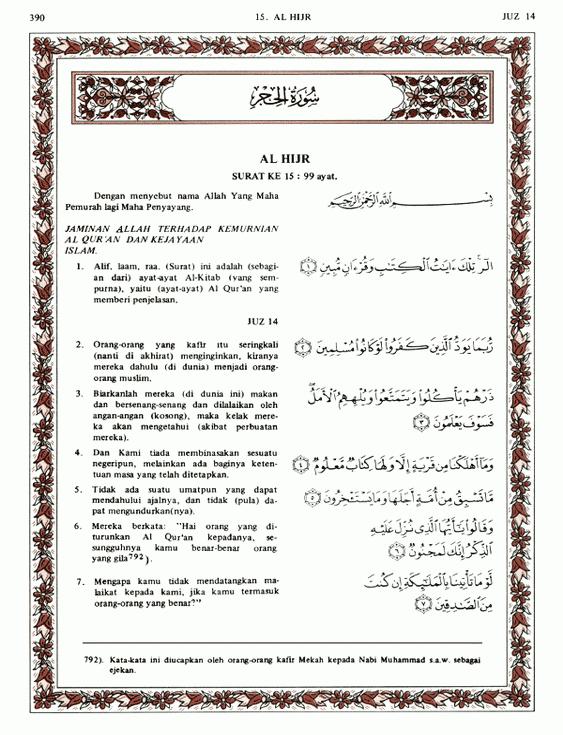 390
15. AL HIJR
JUZ 14
سُورَةُ الحِجْر
AL HIJR
SURAT KE 15 : 99 ayat.
Dengan menyebut nama Allah Yang Maha
Pemurah lagi Maha Penyayang.
بِسْمِ ٱللَّهِ ٱلرَّحْمَٰنِ ٱلرَّحِيمِ
JAMINAN ALLAH TERHADAP KEMURNIAN
AL QUR'AN DAN KEJAYAAN
ISLAM.
1. Alif, laam, raa. (Surat) ini adalah (sebagi-
an dari) ayat-ayat Al-Kitab (yang sem-
purna), yaitu (ayat-ayat) Al Qur'an yang
memberi penjelasan.
الٓر ۚ تِلْكَ ءَايَٰتُ ٱلْكِتَٰبِ وَقُرْءَانٍ مُّبِينٍ ١
JUZ 14
2. Orang-orang yang kafir itu seringkali
(nanti di akhirat) menginginkan, kiranya
mereka dahulu (di dunia) menjadi orang-
orang muslim.
رُّبَمَا يَوَدُّ ٱلَّذِينَ كَفَرُوا۟ لَوْ كَانُوا۟ مُسْلِمِينَ ٢
3. Biarkanlah mereka (di dunia ini) makan
dan bersenang-senang dan dilalaikan oleh
angan-angan (kosong), maka kelak mere-
ka akan mengetahui (akibat perbuatan
mereka).
ذَرْهُمْ يَأْكُلُوا۟ وَيَتَمَتَّعُوا۟ وَيُلْهِهِمُ ٱلْأَمَلُ ۖ
فَسَوْفَ يَعْلَمُونَ ٣
4. Dan Kami tiada membinasakan sesuatu
negeripun, melainkan ada baginya keten-
tuan masa yang telah ditetapkan.
وَمَآ أَهْلَكْنَا مِن قَرْيَةٍ إِلَّا وَلَهَا كِتَابٌ مَّعْلُومٌ ٤
5. Tidak ada suatu umatpun yang dapat
mendahului ajalnya, dan tidak (pula) da-
pat mengundurkan(nya).
مَّا تَسْبِقُ مِنْ أُمَّةٍ أَجَلَهَا وَمَا يَسْتَـْٔخِرُونَ ٥
6. Mereka berkata: "Hai orang yang di-
turunkan Al Qur'an kepadanya, se-
sungguhnya kamu benar-benar orang
yang gila792).
وَقَالُوا۟ يَٰٓأَيُّهَا ٱلَّذِى نُزِّلَ عَلَيْهِ
ٱلذِّكْرُ إِنَّكَ لَمَجْنُونٌ ٦
7. Mengapa kamu tidak mendatangkan ma-
laikat kepada kami, jika kamu termasuk
orang-orang yang benar?"
لَّوْ مَا تَأْتِينَا بِٱلْمَلَٰٓئِكَةِ إِن كُنتَ
مِنَ ٱلصَّٰدِقِينَ ٧
792). Kata-kata ini diucapkan oleh orang-orang kafir Mekah kepada Nabi Muhammad s.a.w. sebagai
ejekan.